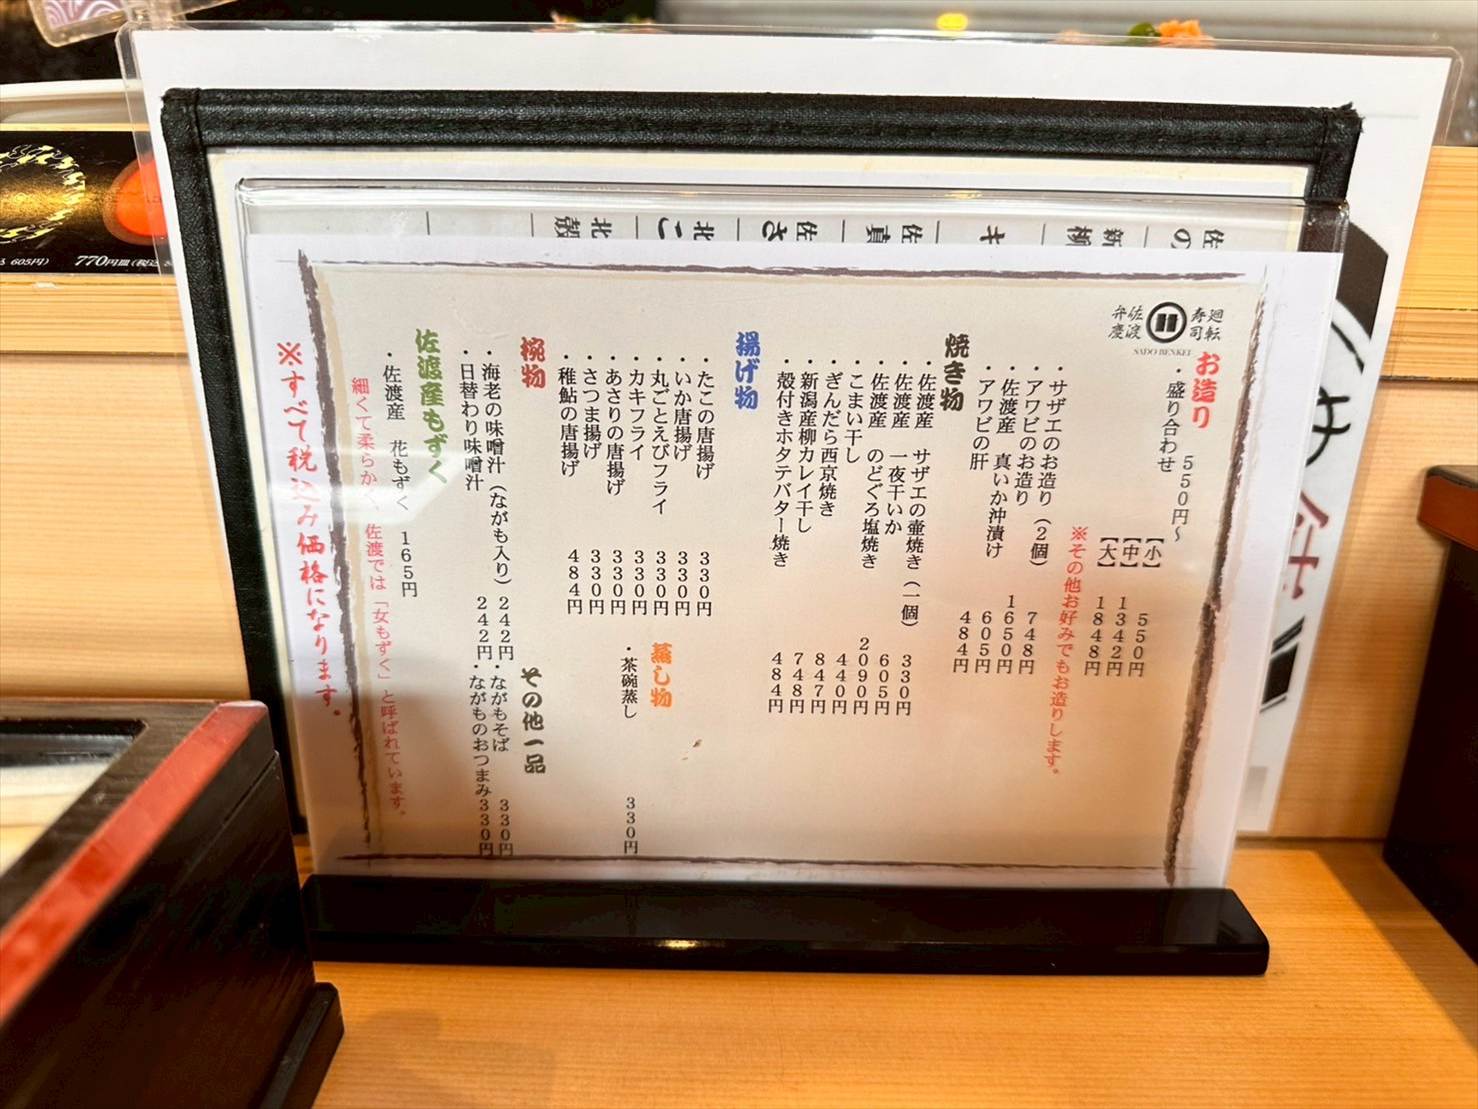 廻転寿司
佐渡弁慶
SADO BENKEI
お造り
・盛り合わせ 550円～
【小】 550円
【中】 1342円
【大】 1848円
※その他お好みでもお造りします。
・サザエのお造り（2個） 748円
・アワビのお造り 1650円
・佐渡産 真いか沖漬け 605円
・アワビの肝 484円
焼き物
・佐渡産 サザエの壷焼き（一個） 330円
・佐渡産 一夜干いか 605円
・佐渡産 のどぐろ塩焼き 2090円
・こまい干し 440円
・ぎんだら西京焼き 847円
・新潟産柳カレイ干し 748円
・殻付きホタテバター焼き 484円
揚げ物
・たこの唐揚げ 330円
・いか唐揚げ 330円
・丸ごとえびフライ 330円
・カキフライ 330円
・あさりの唐揚げ 330円
・さつま揚げ 330円
・稚鮎の唐揚げ 484円
蒸し物
・茶碗蒸し 330円
椀物
・海老の味噌汁（ながも入り） 242円
・日替わり味噌汁 242円
その他一品
・ながもそば 330円
・ながものおつまみ 330円
佐渡産もずく
・佐渡産 花もずく 165円
細くて柔らかく、佐渡では「女もずく」と呼ばれています。
※すべて税込み価格になります。
605円)
770円皿(税込